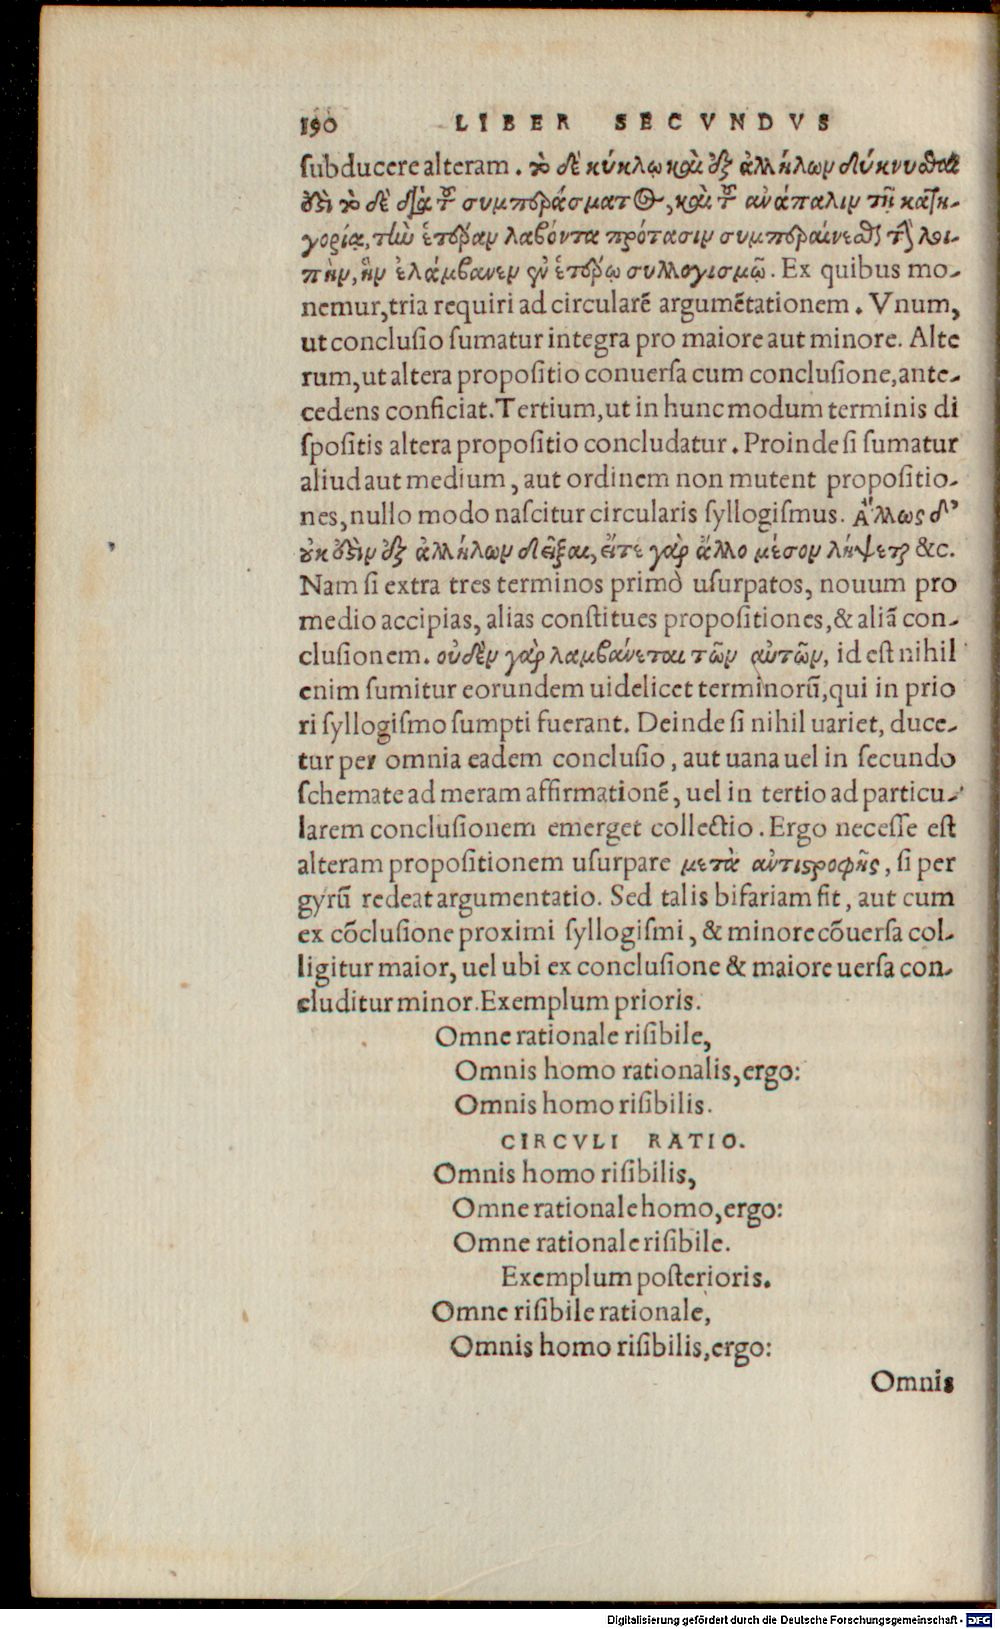 190 LIBER SECVNDVS
subducere alteram. τὸ δὲ κύκλῳ καὶ ἐξ ἀλλήλων δείκνυσθαί
ἐστι τὸ δὲ διὰ τοῦ συμπεράσματος, καὶ τοῦ ἀνάπαλιν τῇ κατη-
γορίᾳ, τὴν ἑτέραν λαβόντα πρότασιν συμπεράνεσθαι τὴν λοι-
πὴν, ἣν ἐλάμβανεν ἐν ἑτέρῳ συλλογισμῷ. Ex quibus mo-
nemur, tria requiri ad circularē argumētationem. Vnum,
ut conclusio sumatur integra pro maiore aut minore. Alte
rum, ut altera propositio conuersa cum conclusione, ante-
cedens conficiat. Tertium, ut in hunc modum terminis di
spositis altera propositio concludatur. Proinde si sumatur
aliud aut medium, aut ordinem non mutent propositio-
nes, nullo modo nascitur circularis syllogismus. Ἄλλως δ'
οὐκ ἔστιν ἐξ ἀλλήλων δεῖξαι, εἴτε γὰρ ἄλλο μέσον λήψεται &c.
Nam si extra tres terminos primò usurpatos, nouum pro
medio accipias, alias constitues propositiones, & aliā con-
clusionem. οὐδὲν γὰρ λαμβάνεται τῶν αὐτῶν, id est nihil
enim sumitur eorundem uidelicet terminorū, qui in prio
ri syllogismo sumpti fuerant. Deinde si nihil uariet, duce-
tur per omnia eadem conclusio, aut uana uel in secundo
schemate ad meram affirmationē, uel in tertio ad particu-
larem conclusionem emerget collectio. Ergo necesse est
alteram propositionem usurpare μετὰ ἀντιστροφῆς, si per
gyrū redeat argumentatio. Sed talis bifariam fit, aut cum
ex cōclusione proximi syllogismi, & minore cōuersa col-
ligitur maior, uel ubi ex conclusione & maiore uersa con-
cluditur minor. Exemplum prioris.
Omne rationale risibile,
Omnis homo rationalis, ergo:
Omnis homo risibilis.
CIRCVLI RATIO.
Omnis homo risibilis,
Omne rationale homo, ergo:
Omne rationale risibile.
Exemplum posterioris.
Omne risibile rationale,
Omnis homo risibilis, ergo:
Omnis
Digitalisierung gefördert durch die Deutsche Forschungsgemeinschaft - DFG